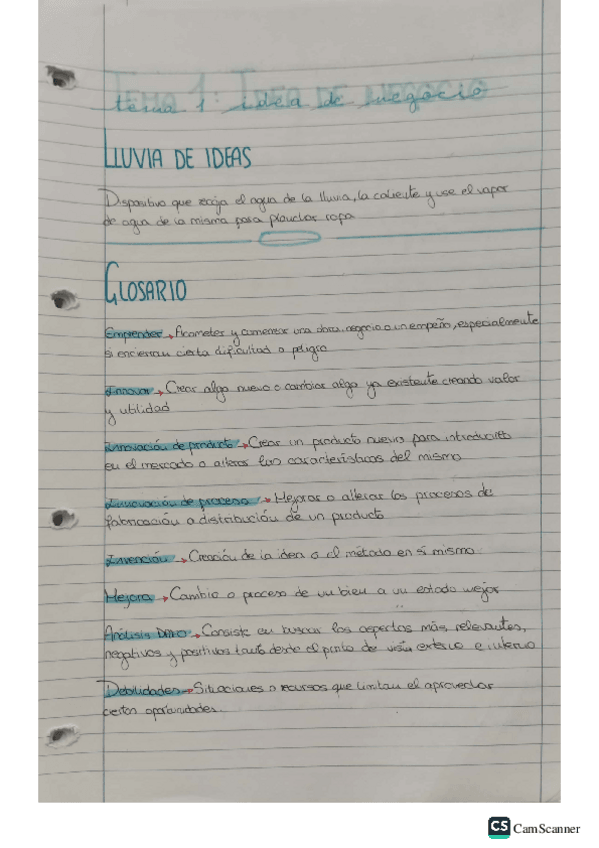 Tema 1: Idea de negocio
LLUVIA DE IDEAS
Dispositivo que recoja el agua de la lluvia, la caliente y use el vapor
de agua de la misma para planchar ropa
GLOSARIO
Emprender → Acometer y comenzar una obra, negocio o un empeño, especialmente
si encierran cierta dificultad o peligro
Innovar → Crear algo nuevo o cambiar algo ya existente creando valor
y utilidad
Innovación de producto → Crear un producto nuevo para introducirlo
en el mercado o alterar las características del mismo
Innovación de proceso → Mejorar o alterar los procesos de
fabricación o distribución de un producto
Invención → Creación de la idea o el método en sí mismo
Mejora → Cambio o proceso de un bien a un estado mejor
Análisis DAFO → Consiste en buscar los aspectos más relevantes,
negativos y positivos tanto desde el punto de vista externo e interno
Debilidades → Situaciones o recursos que limitan el aprovechar
ciertas oportunidades.
CS CamScanner